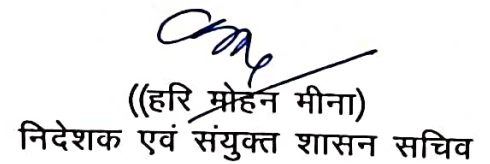 ((हरि मोहन मीना)
निदेशक एवं संयुक्त शासन सचिव